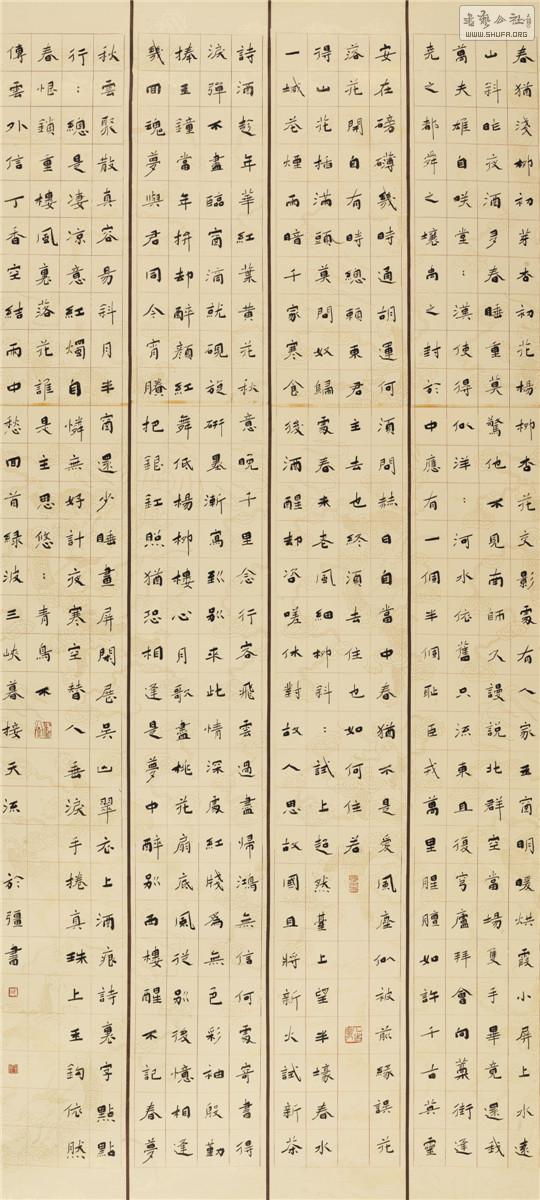 春猶淺柳初芽杏初花楊柳杏花交影處有人家玉窗明暖烘霞小屏上水遠
山斜昨夜酒多春睡重莫驚他不見南師久謾說北群空當場隻手畢竟還我
萬夫雄自咲堂:漢使得似洋:河水依舊只流東且復穹廬拜會向藁街逢
堯之都舜之壤禹之封於中應有一個半個恥臣戎萬里腥膻如許千古英靈
安在磅礴幾時通胡運何須問赫日自當中春猶不是愛風塵似被前緣誤花
落花開自有時總賴東君主去也終須去住也如何住若
得山花插滿頭莫問奴歸處春未老風細柳斜:試上超然臺上望半壕春水
一城花煙雨暗千家寒食後酒醒却咨嗟休對故人思故國且將新火試新茶
詩酒趁年華紅葉黃花秋意晚千里念行客飛雲過盡歸鴻無信何處寄書得
淚彈不盡臨窗滴就硯旋研墨漸寫到別來此情深處紅牋爲無色彩袖殷勤
捧玉鐘當年拚却醉顏紅舞低楊柳樓心月歌盡桃花扇底風從別後憶相逢
幾回魂夢與君同今宵賸把銀釭照猶恐相逢是夢中醉別西樓醒不記春夢
秋雲聚散真容易斜月半窗還少睡畫屏閑展吳山翠衣上酒痕詩裏字點點
行:總是凄涼意紅燭自憐無好計夜寒空替人垂淚手捲真珠上玉鉤依然
春恨鎖重樓風裏落花誰是主思悠:青鳥不
傳雲外信丁香空結雨中愁回首綠波三峽暮接天流 於彊書
WWW.SHUFA.ORG